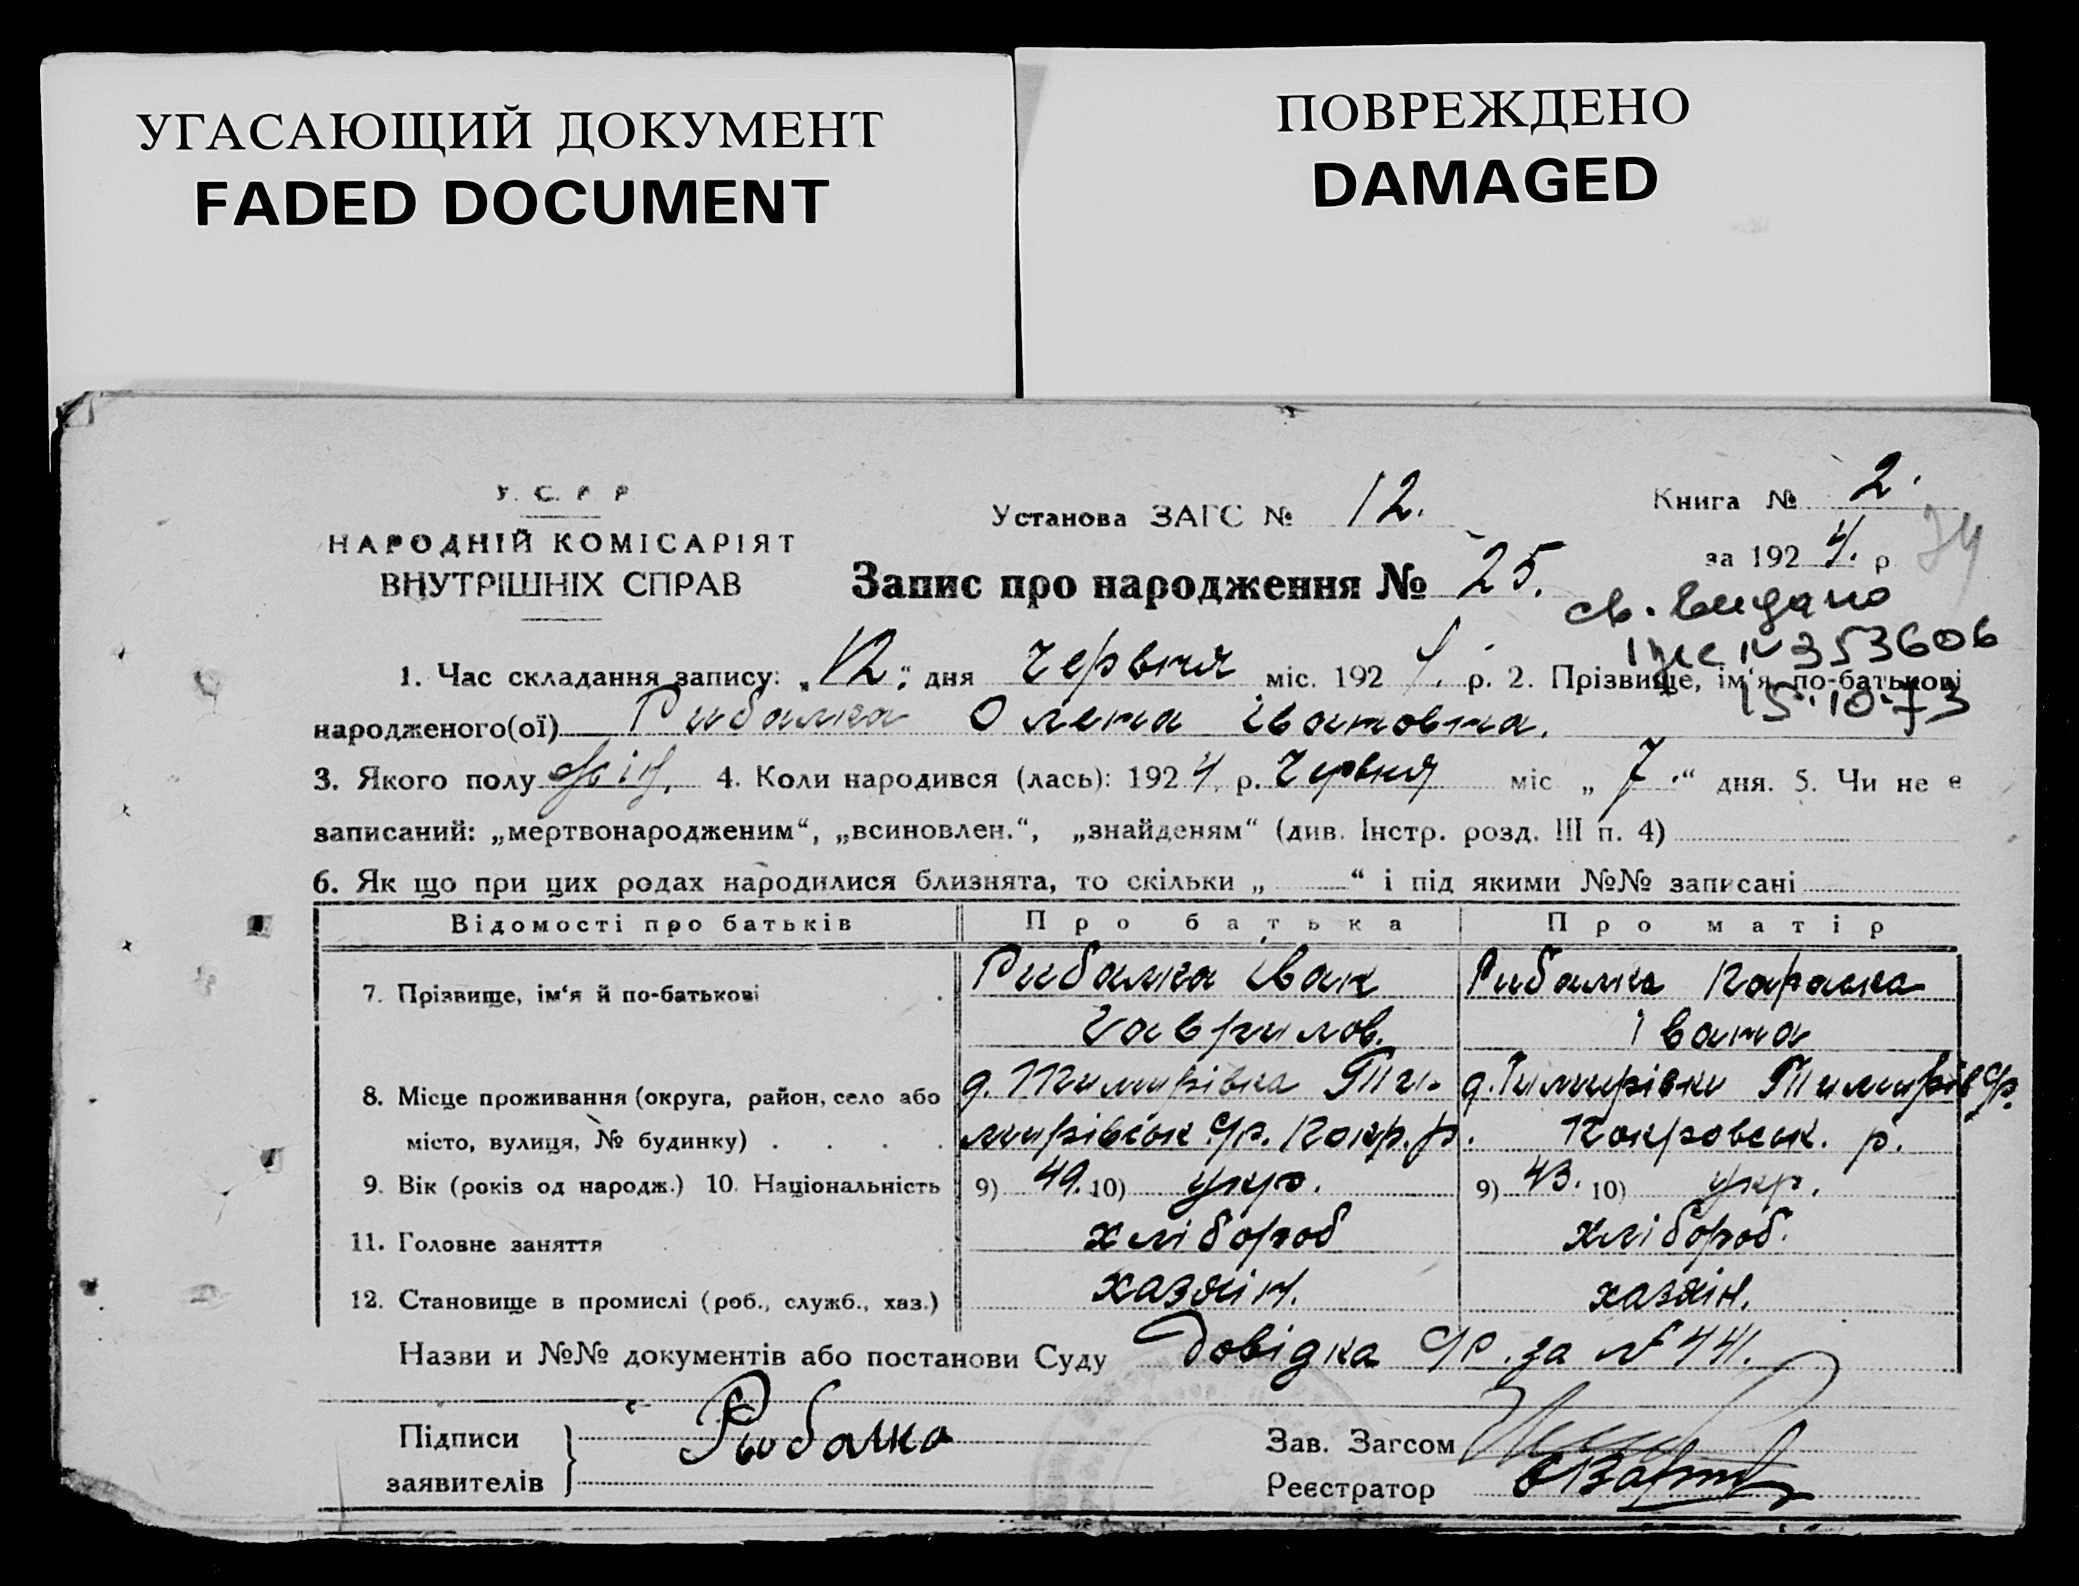 УГАСАЮЩИЙ ДОКУМЕНТ
FADED DOCUMENT
ПОВРЕЖДЕНО
DAMAGED
У. С. Р Р
НАРОДНІЙ КОМІСАРІЯТ
ВНУТРІШНІХ СПРАВ
Установа ЗАГС № 12.
Книга № 2.
за 1924. р
74
Запис про народження № 25.
св. видано
N 353606
15.10.73
1. Час складання запису: „12“ дня червня міс. 1924. р. 2. Прізвище, ім‘я, по-батькові
народженого(ої) Рибалка Олена Івановна.
3. Якого полу жін. 4. Коли народився (лась): 1924. р. Червня міс „7.“ дня. 5. Чи не є
записаний: „мертвонародженим“, „всиновлен.“, „знайденям“ (див. Інстр. розд. III п. 4)
6. Як що при цих родах народилися близнята, то скільки „ “ і під якими №№ записані
Відомості про батьків Про батька Про матір
7. Прізвище, ім‘я й по-батькові Рибалка Іван Рибалка Параска
Гаврилов. Івана
8. Місце проживання (округа, район, село або д. Тимирівка Ти- д. Тимирівки Тимирів с/р.
місто, вулиця, № будинку) мирівськ с/р. Покр. р. Покровськ. р.
9. Вік (років од народж.) 10. Національність 9) 49. 10) укр. 9) 43. 10) укр.
11. Головне заняття хлібороб хлібороб.
12. Становище в промислі (роб., служб., хаз.) хазяїн. хазяїн.
Назви и №№ документів або постанови Суду Довідка с/р. за № 441.
Підписи
заявителів
Рыбалка
Зав. Загсом
Реєстратор